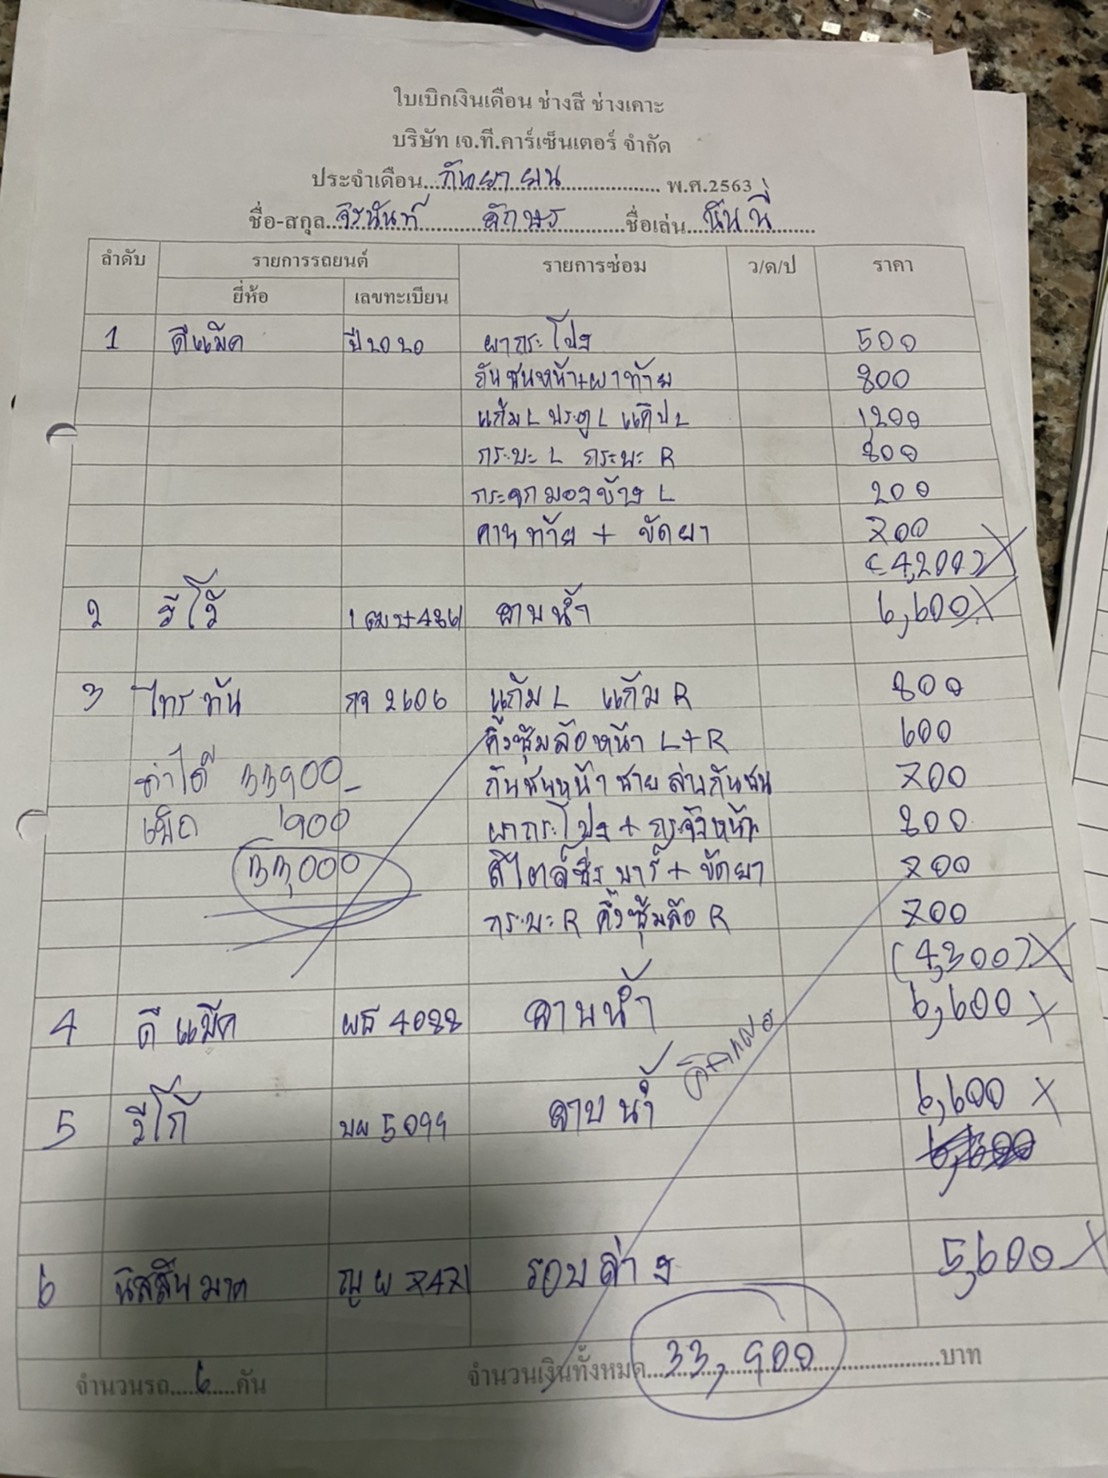 ใบเบิกเงินเดือน ช่างสี ช่างเคาะ
บริษัท เจ.ที.คาร์เซ็นเตอร์ จำกัด
ประจำเดือน...กันยายน... พ.ศ.2563
ชื่อ-สกุล...จิรนันท์ ลักษร...ชื่อเล่น...นันนี่...
ลำดับ รายการรถยนต์ รายการซ่อม ว/ด/ป ราคา
ยี่ห้อ เลขทะเบียน
1 ดีแม็ค ปี2020 ฝากระโปง 500
กันชนหน้า+ฝาท้าย 800
แก้ม L ประตู L แค๊ป L 1,200
กระบะ L กระบะ R 800
กระจกมองข้าง L 200
คานท้าย + ขัดยา 700
(4,200) X
2 รีโว้ คาบน้ำ 6,600 X
3 ไทรทัน กจ 2606 แก้ม L แก้ม R 800
คิ้วซุ้มล้อหน้า L+R 600
ทำได้ 33900 กันชนหน้า ชายล่างกันชน 700
เบิก 900 ฝากระโปง + กระจังหน้า 800
33,000 สไตล์ซิ่งบาร์ + ขัดยา 700
กระบะ R คิ้วซุ้มล้อ R 700
(4,300) X
4 ดีแม็ค ผธ 4088 คาบน้ำ 6,600 X
5 วีโก้ บผ 5099 คาบน้ำ 6,600 X
6 นิสสันมาด ญผ 7471 รอบล่าง 5,600 X
จำนวนรถ...6...คัน จำนวนเงินทั้งหมด...33,900...บาท